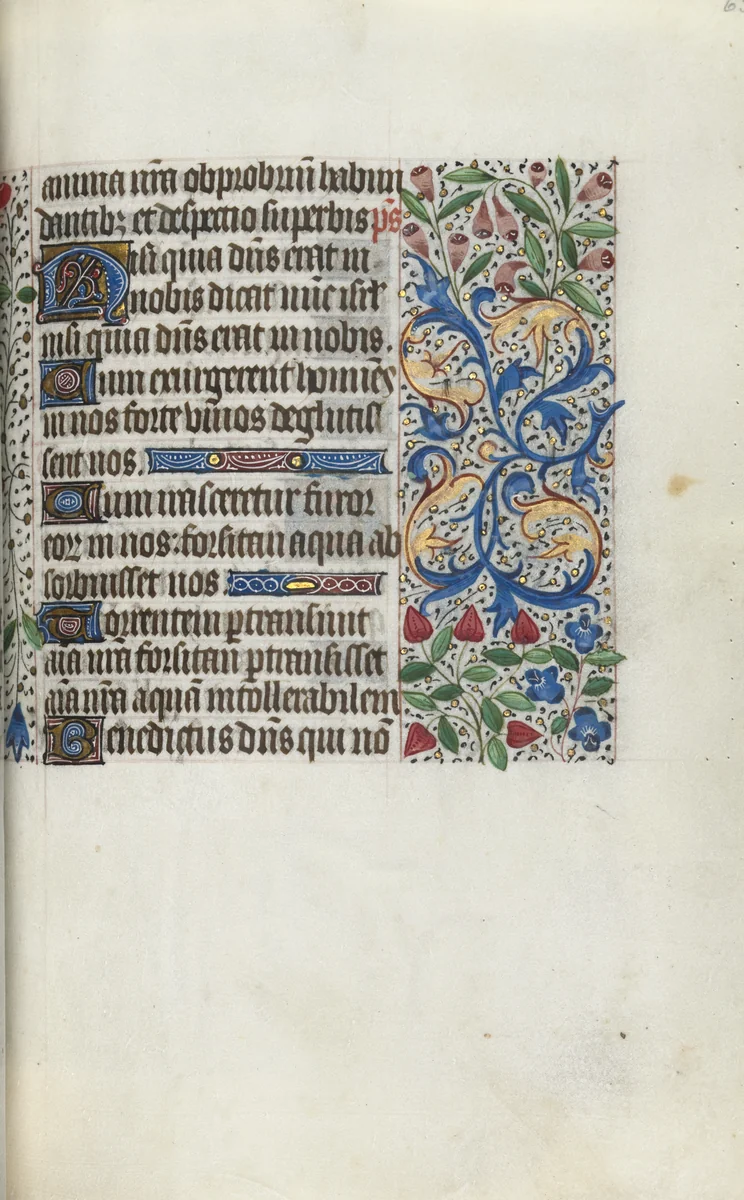 anima nr̄a obprobriū̄ habun
dantibꝫ et despectio superbis p̄s
Nisi quia dn̄s erat in
nobis dicat nūc isrl̄
nisi quia dn̄s erat in nobis.
Cum exurgerent homines
in nos forte viuos deglutis
sent nos.
Cum irasceretur furor
eoꝝ in nos: forsitan aqua ab
sorbuisset nos
Torrentem ꝑtransiuit
aīa nr̄a forsitan ꝑtransisset
aīa nr̄a aquā intollerabilem
Benedictus dn̄s qui nō